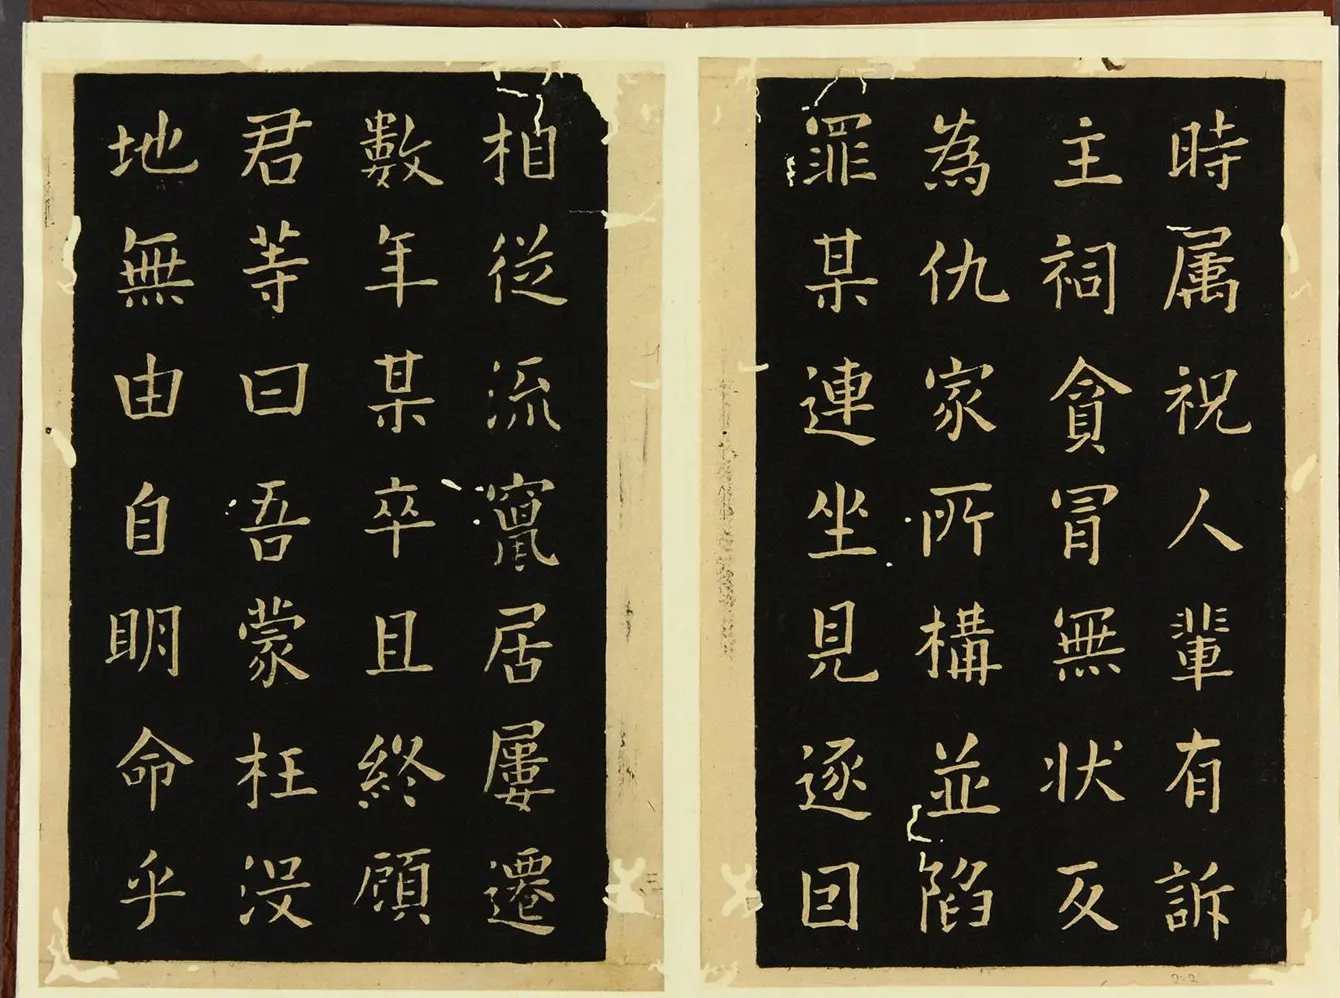 時属祝人輩有訴
主祠貪冒無状反
為仇家所構並陷
罪某連坐見逐回
柏從流竄居屢遷
數年某卒且終顧
君等曰吾蒙枉没
地無由自明命乎